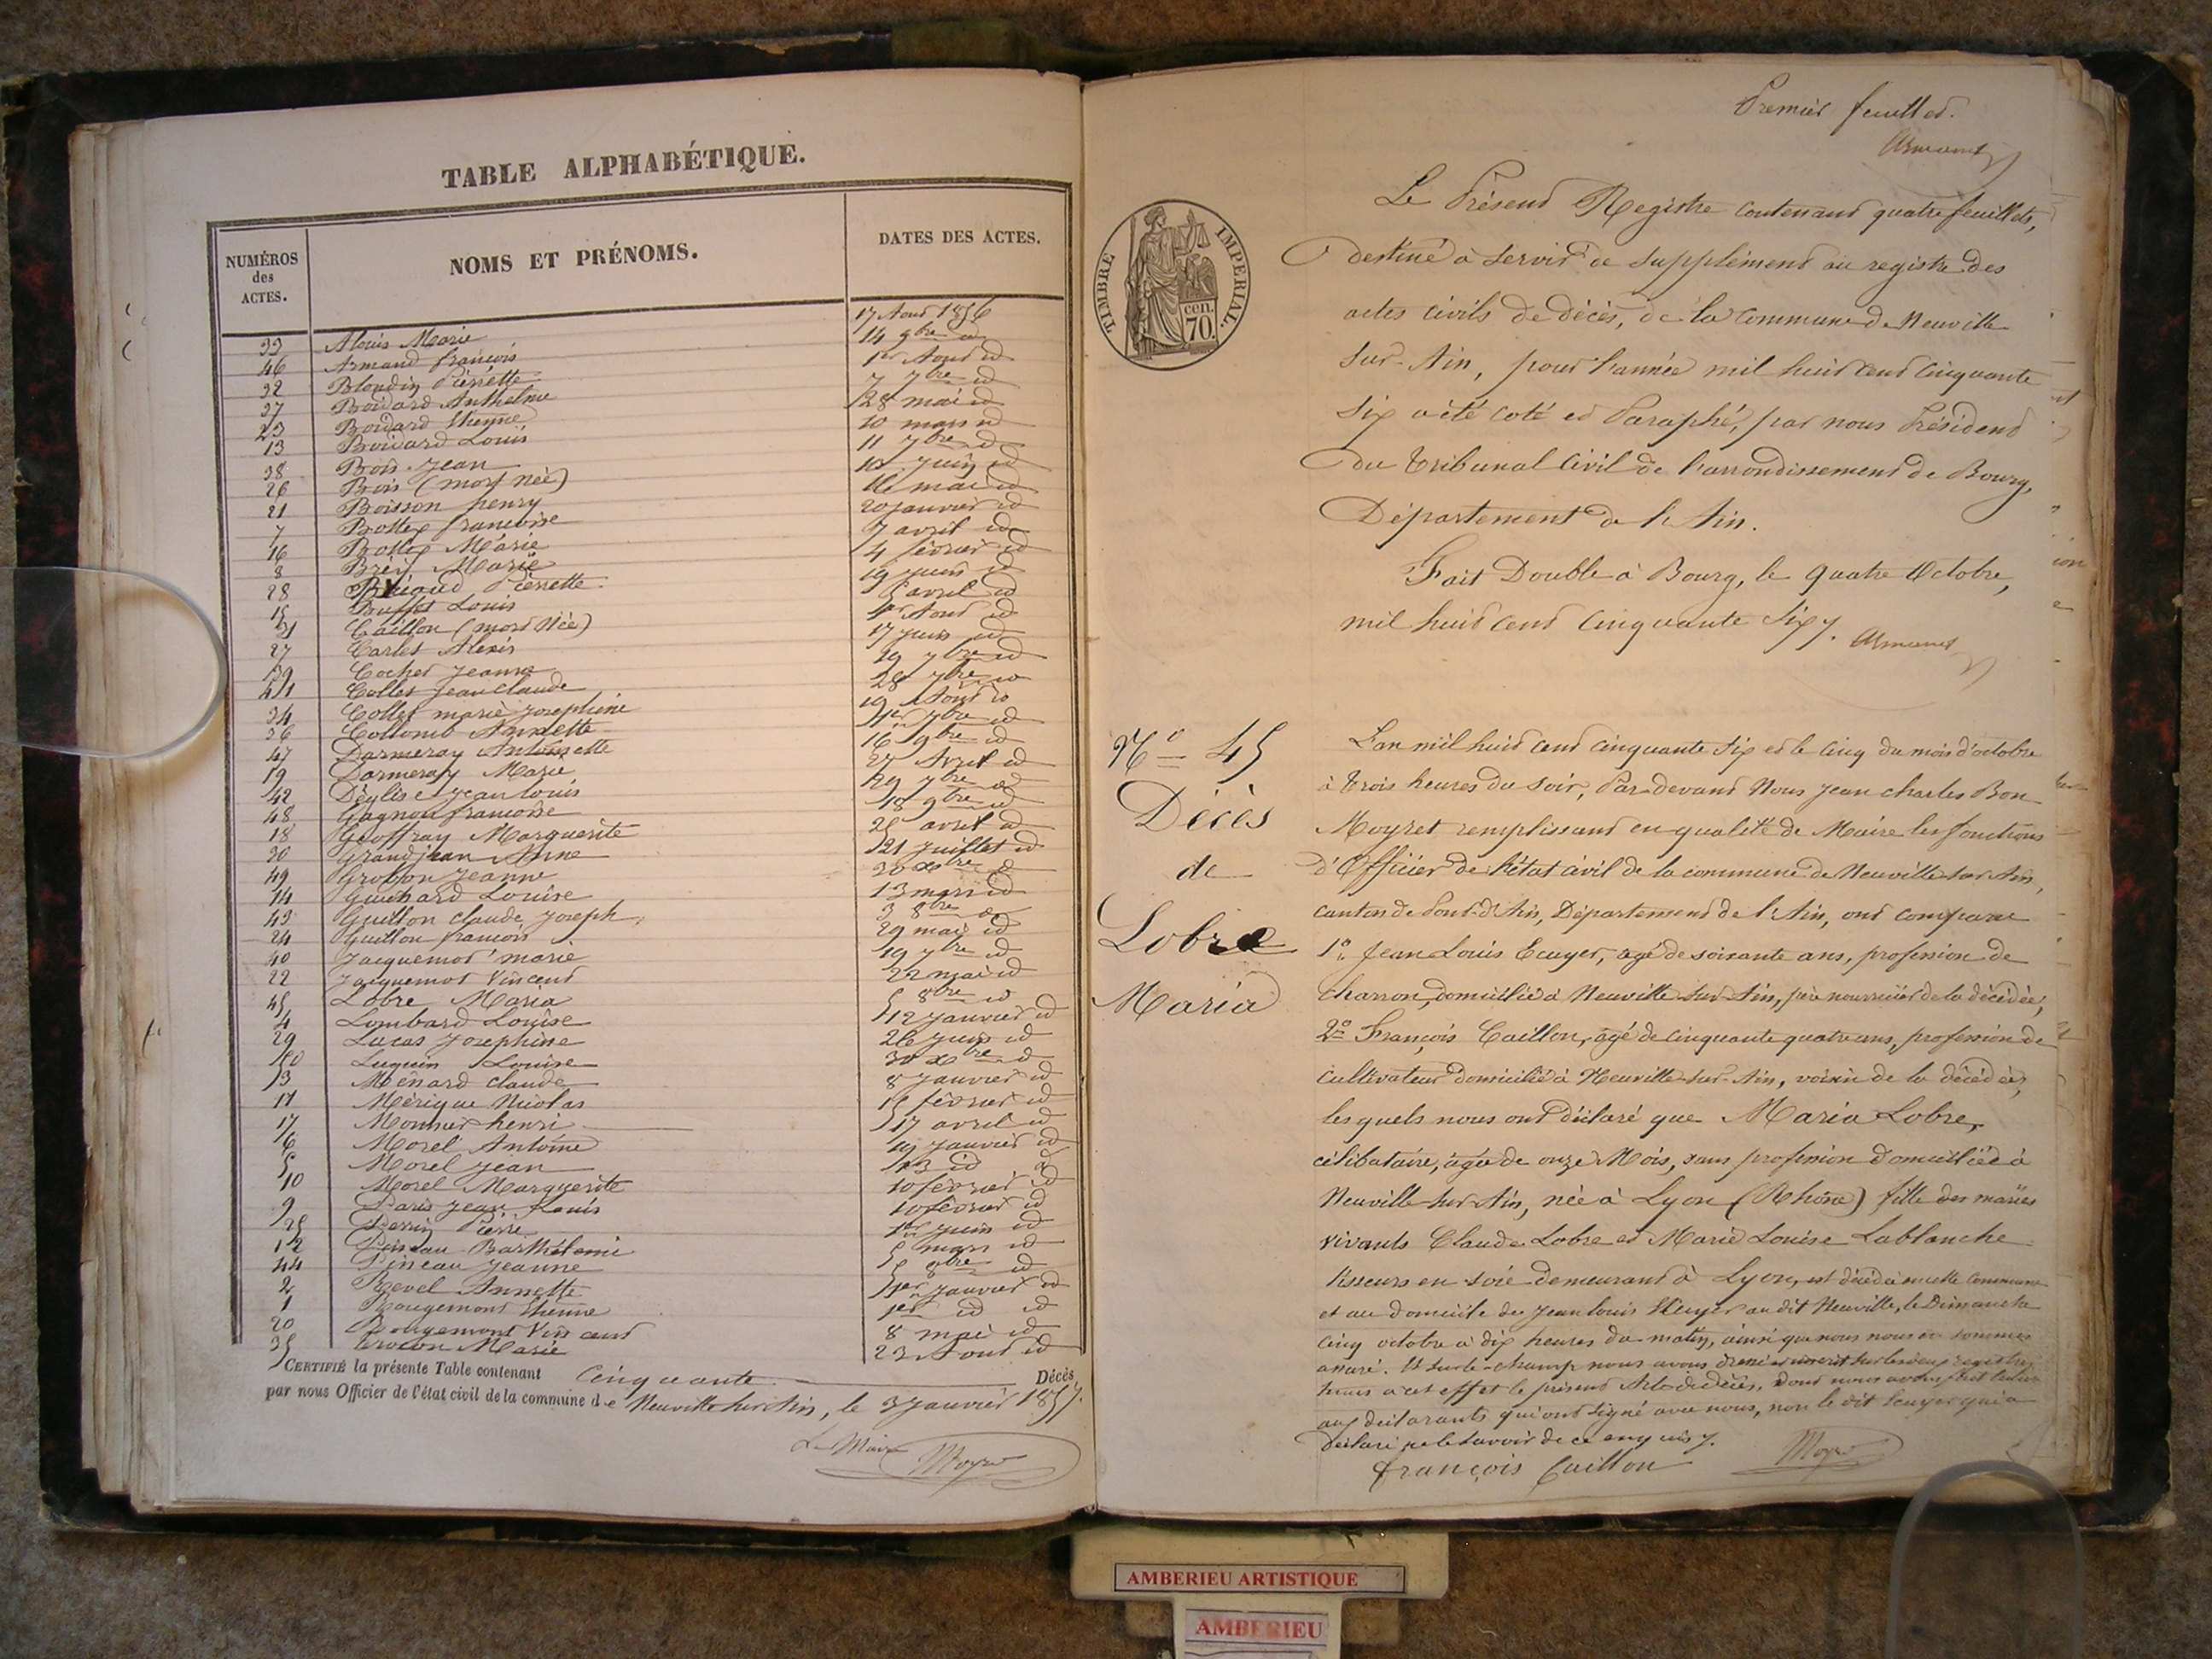 TABLE ALPHABÉTIQUE.
NUMÉROS des ACTES. NOMS ET PRÉNOMS. DATES DES ACTES.
33 Alouis Marie 17 Aout 1856
46 Armand françois 14 9bre id
32 Blondin Pierrette 1er Aout id
37 Boivard Anthelme 7 7bre id
23 Boivard Etienne 28 mai id
13 Boivard Louis 10 mars id
38 Bois Jean 11 7bre id
26 Bois (mort née) 10 juin id
21 Boisson henry 16 mai id
7 Bottex francoise 20 janvier id
16 Bottex Marie 9 avril id
8 Brey Marie 4 février id
28 Pierrette 19 juin id
15 Buffet Louis 5 avril id
31 Caillon (mort Née) 1er Aout id
27 Carles Alexis 17 juin id
39 Cochet Jeanne 19 7bre id
41 Collet Jean Claude 28 7bre id
34 Collet marie josephine 19 Aout id
36 Collomb Annette 1er 7bre id
47 Darmeray Antoinette 16 9bre id
19 Darmeray Marie 27 Avril id
42 Déglise jean louis 29 7bre id
48 Gagnon francoise 18 9bre id
18 Geoffray Marguerite 25 avril id
30 Grandjean Anne 21 juillet id
49 Grobon Jeanne 20 Xbre id
14 Guichard Louise 13 mars id
43 Guillon Claude Joseph 3 8bre id
24 Guillon francois 29 mai id
40 Jacquemot marie 19 7bre id
22 Jacquemot Vincent 22 mai id
45 Lobre Maria 5 8bre id
4 Lombard Louise 12 janvier id
29 Lucas Josephine 26 juin id
50 Luquin Louise 30 Xbre id
3 Ménard Claude 8 janvier id
11 Mérique Nicolas 15 février id
17 Monnier henri 17 avril id
6 Morel Antoine 19 janvier id
5 Morel Jean 13 id id
10 Morel Marguerite 10 février id
9 Paris Jean Louis 10 février id
25 Perrin Pierre 1er juin id
12 Pineau Barthélemi 5 mars id
44 Pineau Jeanne 5 8bre id
2 Revel Annette 1er janvier id
1 Rougemont Etienne 1er id id
20 Rougemont Vincent 8 mai id
35 Trocon Marie 23 Aout id
CERTIFIÉ la présente Table contenant Cinquante Décès
par nous Officier de l'état civil de la commune de Neuville sur Ain, le 3 Janvier 1857.
Le Maire Moyret
Premier feuillet.
Armand
TIMBRE IMPERIAL.
cen. 70.
Le Présent Registre contenant quatre feuillets,
destiné à servir de supplément au registre des
actes civils de décès, de la commune de Neuville
sur-Ain, pour l'année mil huit cent cinquante
six a été coté et Paraphé, par nous Président
du tribunal civil de l'arrondissement de Bourg,
Département de l'Ain.
Fait Double à Bourg, le quatre Octobre,
mil huit cent cinquante six.
Armand
No 45
Décès
de
Lobre
Maria
L'an mil huit cent cinquante six et le cinq du mois d'octobre
à trois heures du soir, Par devant Nous Jean Charles Bon
Moyret remplissant en qualité de Maire les fonctions
d'Officier de l'état civil de la commune de Neuville sur Ain,
canton de Pont-d'Ain, Département de l'Ain, ont comparu
1o Jean Louis Ecuyer, agé de soixante ans, profession de
charron, domicilié à Neuville sur-Ain, père nourricier de la décédée,
2o François Caillon, âgé de cinquante quatre ans, profession de
cultivateur domicilié à Neuville sur-Ain, voisin de la décédée,
lesquels nous ont déclaré que Maria Lobre,
célibataire, âgée de onze Mois, sans profession domiciliée à
Neuville sur Ain, née à Lyon (Rhône) fille des mariés
vivants Claude Lobre et Marie Louise Lablanche
tisseurs en soie demeurant à Lyon, est décédée en cette Commune
et au domicile du Jean louis Ecuyer au dit Neuville, le Dimanche
cinq octobre à dix heures du matin, ainsi que nous nous en sommes
assuré. Et sur le-champ nous avons dressé et inscrit sur les deux registres
tenus à cet effet le présent Acte de décès, dont nous avons fait lecture
aux déclarants qui ont signé avec nous, non le dit Ecuyer qui a
déclaré ne le savoir de ce enquis.
françois Caillon Moyret
AMBERIEU ARTISTIQUE
AMBERIEU